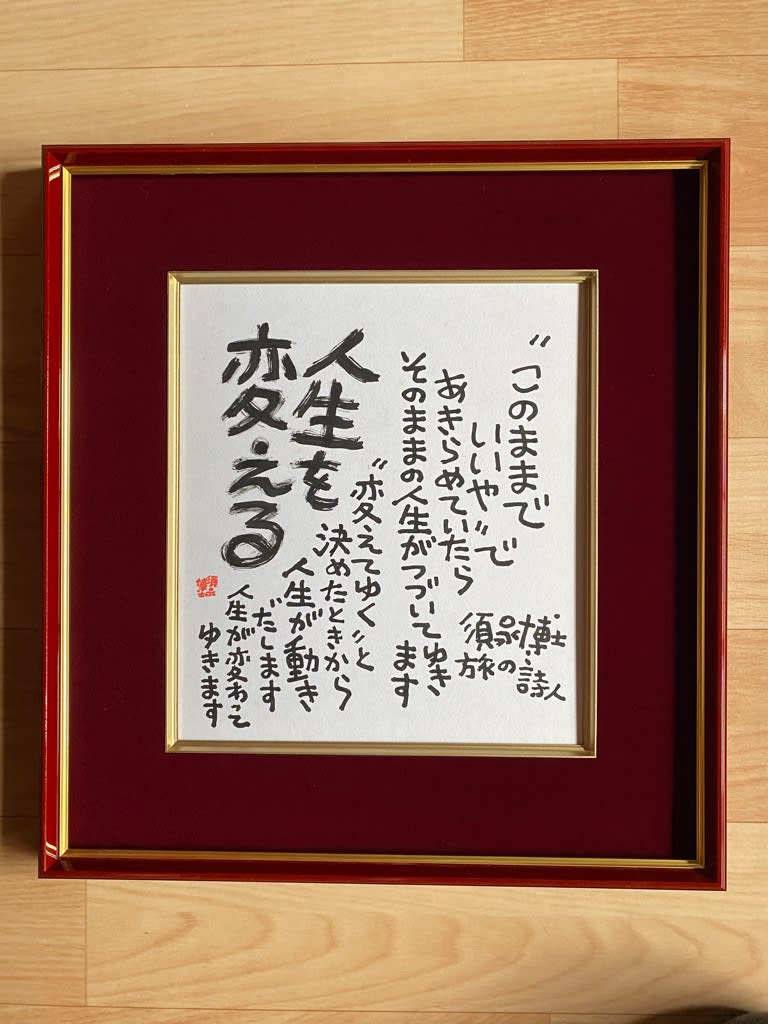 〝このままで
いいや〟で
あきらめていたら
そのままの人生がつづいてゆき
ます
人生を
変える
〝変えてゆく〟と
決めたときから
人生が動き
だします
人生が変わって
ゆきます
須永博士
旅の詩人